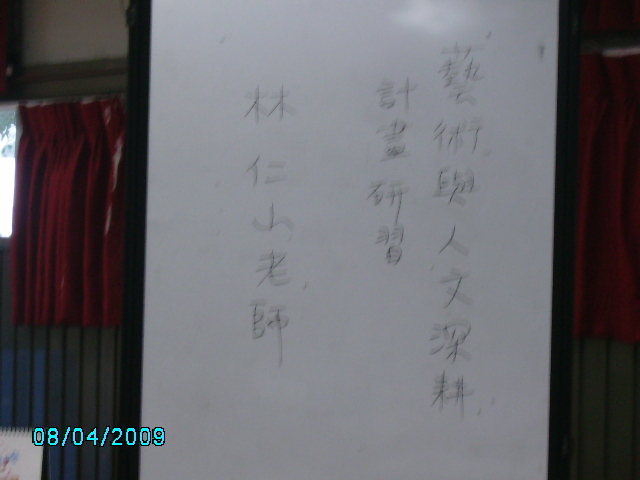 藝術與人文深耕
計畫研習
林仁山老師
08/04/2009